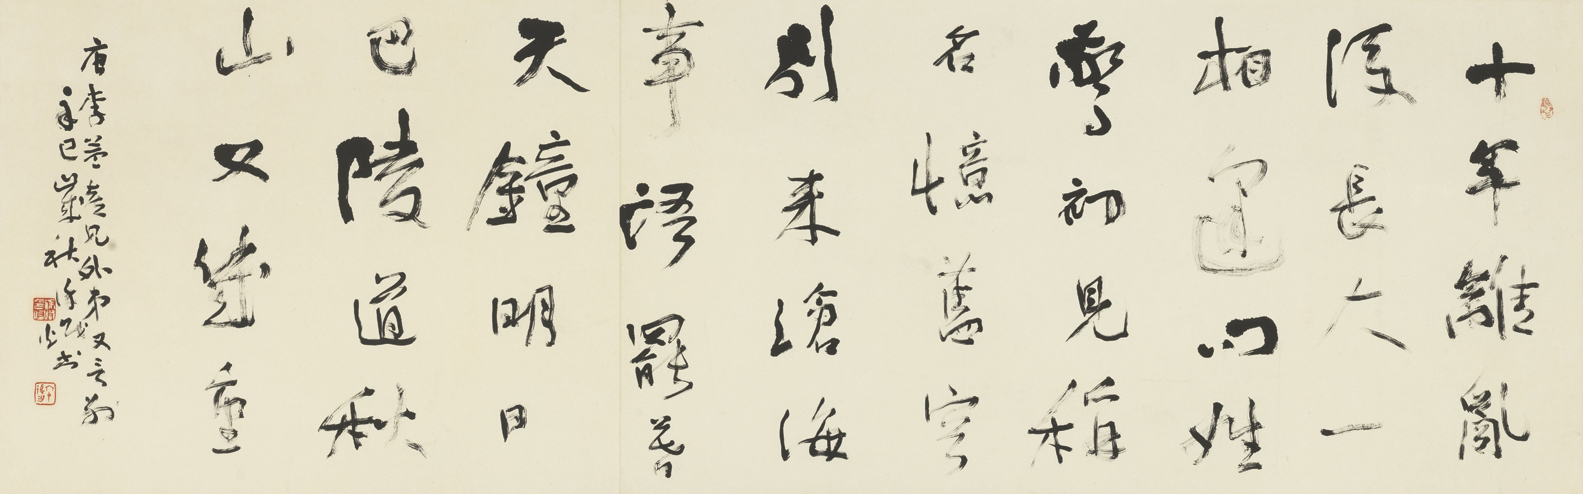 十年離亂
後長大一
相逢問姓
驚初見稱
名憶舊容
別來滄海
事語罷暮
天鐘明日
巴陵道秋
山又幾重
唐李益喜見外弟又言別
辛巳歲秋書